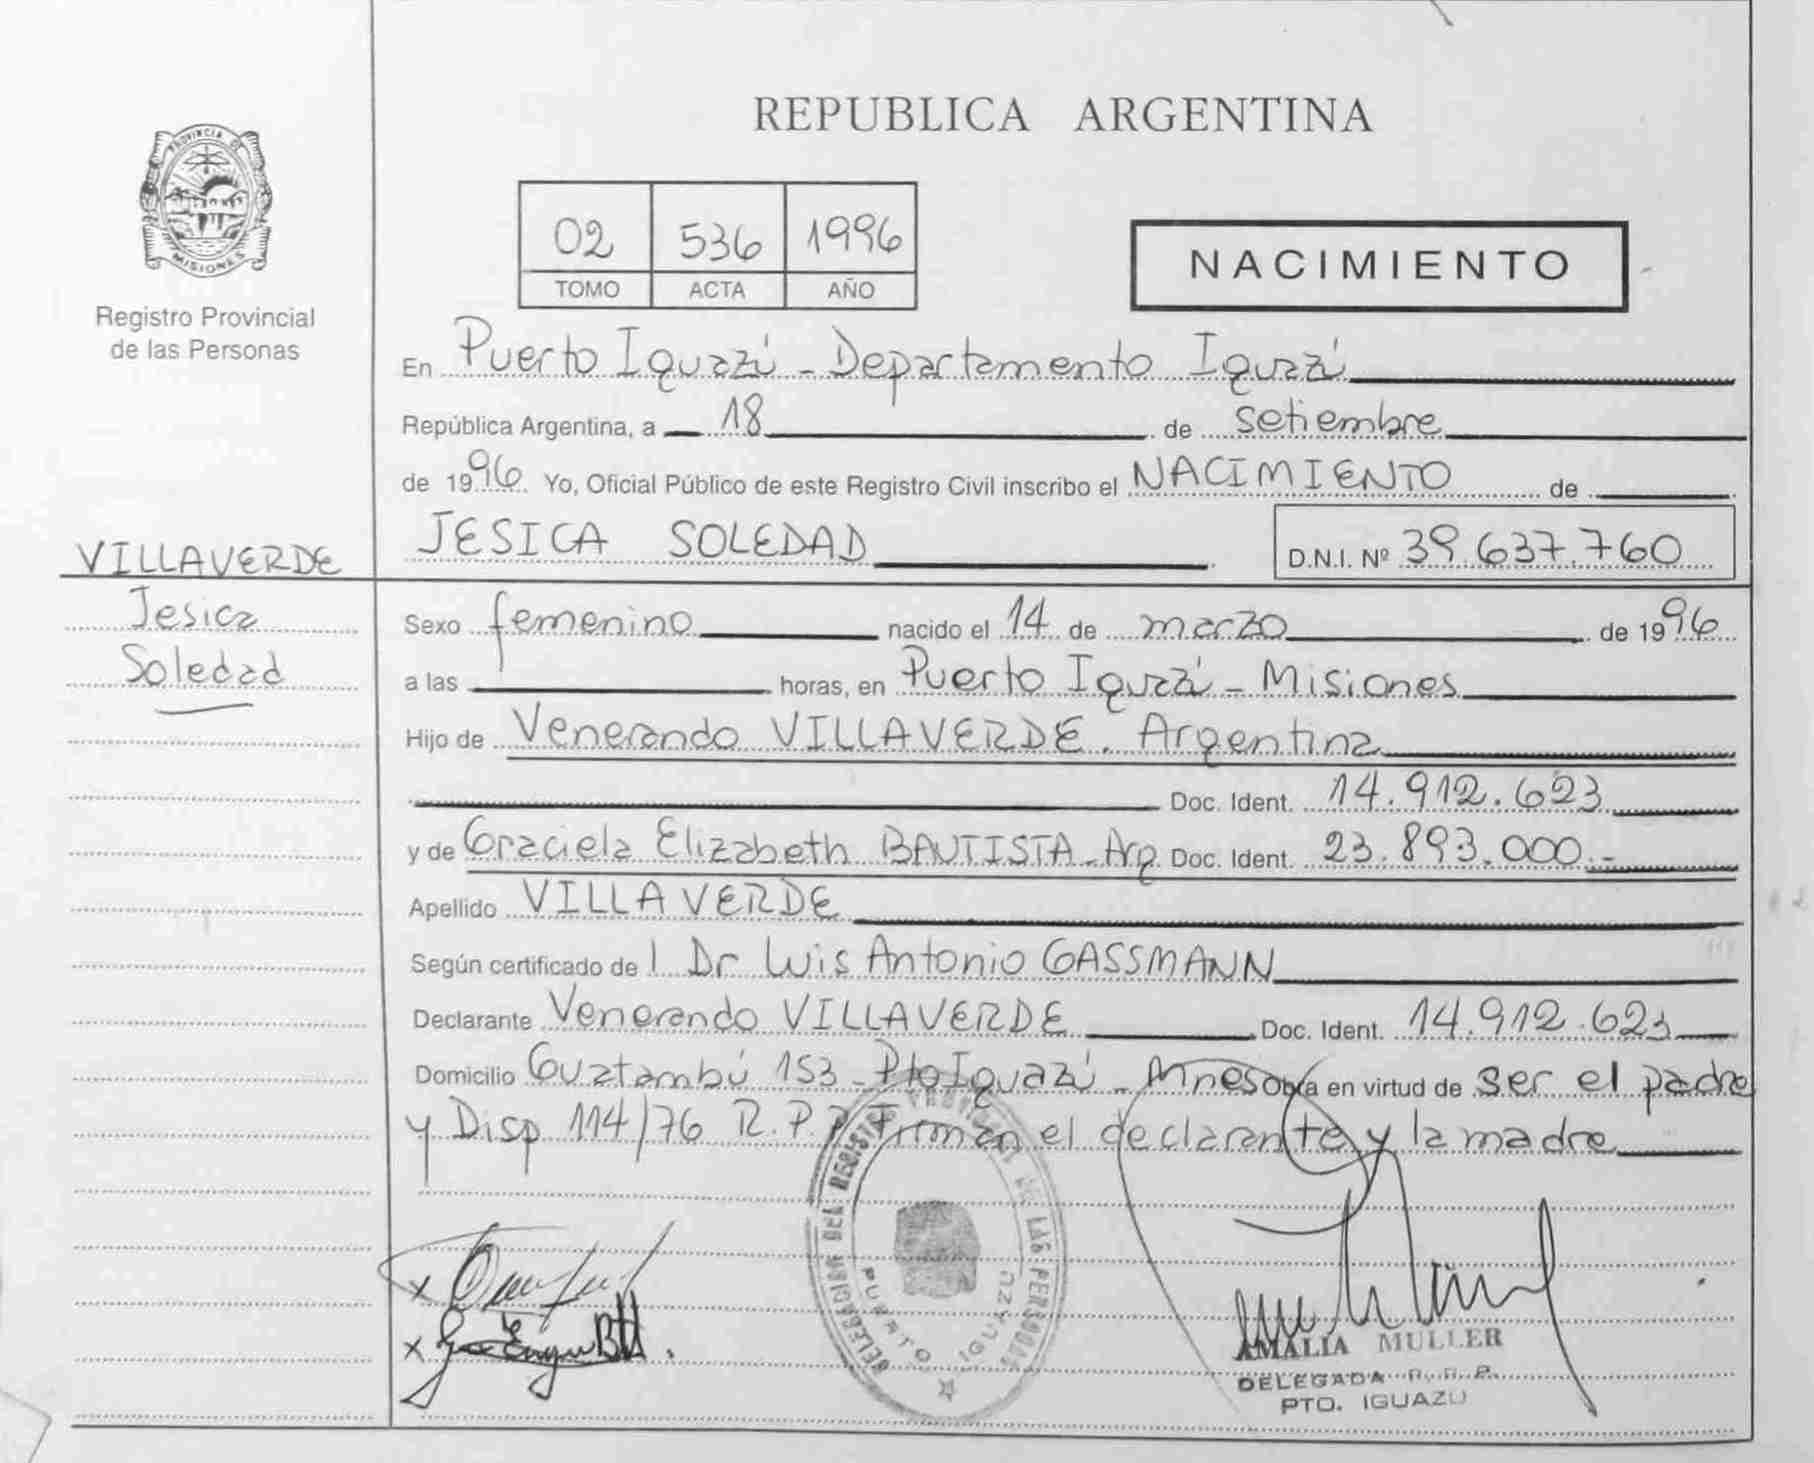 REPUBLICA ARGENTINA
PROVINCIA DE
MISIONES
Registro Provincial
de las Personas
02 536 1996
TOMO ACTA AÑO
NACIMIENTO
En Puerto Iguazú - Departamento Iguazú
República Argentina, a 18 de setiembre
de 1996 Yo, Oficial Público de este Registro Civil inscribo el NACIMIENTO de
JESICA SOLEDAD D.N.I. Nº 39.637.760
VILLAVERDE
Jesica
Soledad
Sexo femenino nacido el 14 de marzo de 1996
a las horas, en Puerto Iguazú - Misiones
Hijo de Venerando VILLAVERDE. Argentina
Doc. Ident. 14.912.623
y de Graciela Elizabeth BAUTISTA - Arg Doc. Ident. 23.893.000.-
Apellido VILLAVERDE
Según certificado de l Dr Luis Antonio GASSMANN
Declarante Venerando VILLAVERDE Doc. Ident. 14.912.623
Domicilio Guatambú 153 - Pto Iguazú - Mnes Obra en virtud de ser el padre
y Disp 114/76 R.P.P. Firman el declarante y la madre
DELEGACION DEL REGISTRO PROVINCIAL DE LAS PERSONAS
PUERTO IGUAZU
AMALIA MULLER
DELEGADA R. P. P.
PTO. IGUAZU